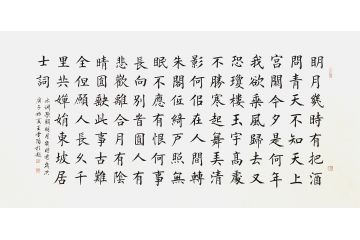 明月幾時有把酒
問青天不知天上
宮闕今夕是何年
我欲乘風歸去又
恐瓊樓玉宇高處
不勝寒起舞弄清
影何佀在人間轉
朱閣低綺戶照無
眠不應有恨何事
長向別旹圓人有
悲歡離合月有陰
晴圓缺此事古難
全但願人長久千
里共嬋娟東坡居
士詞
水調歌頭明月幾時有